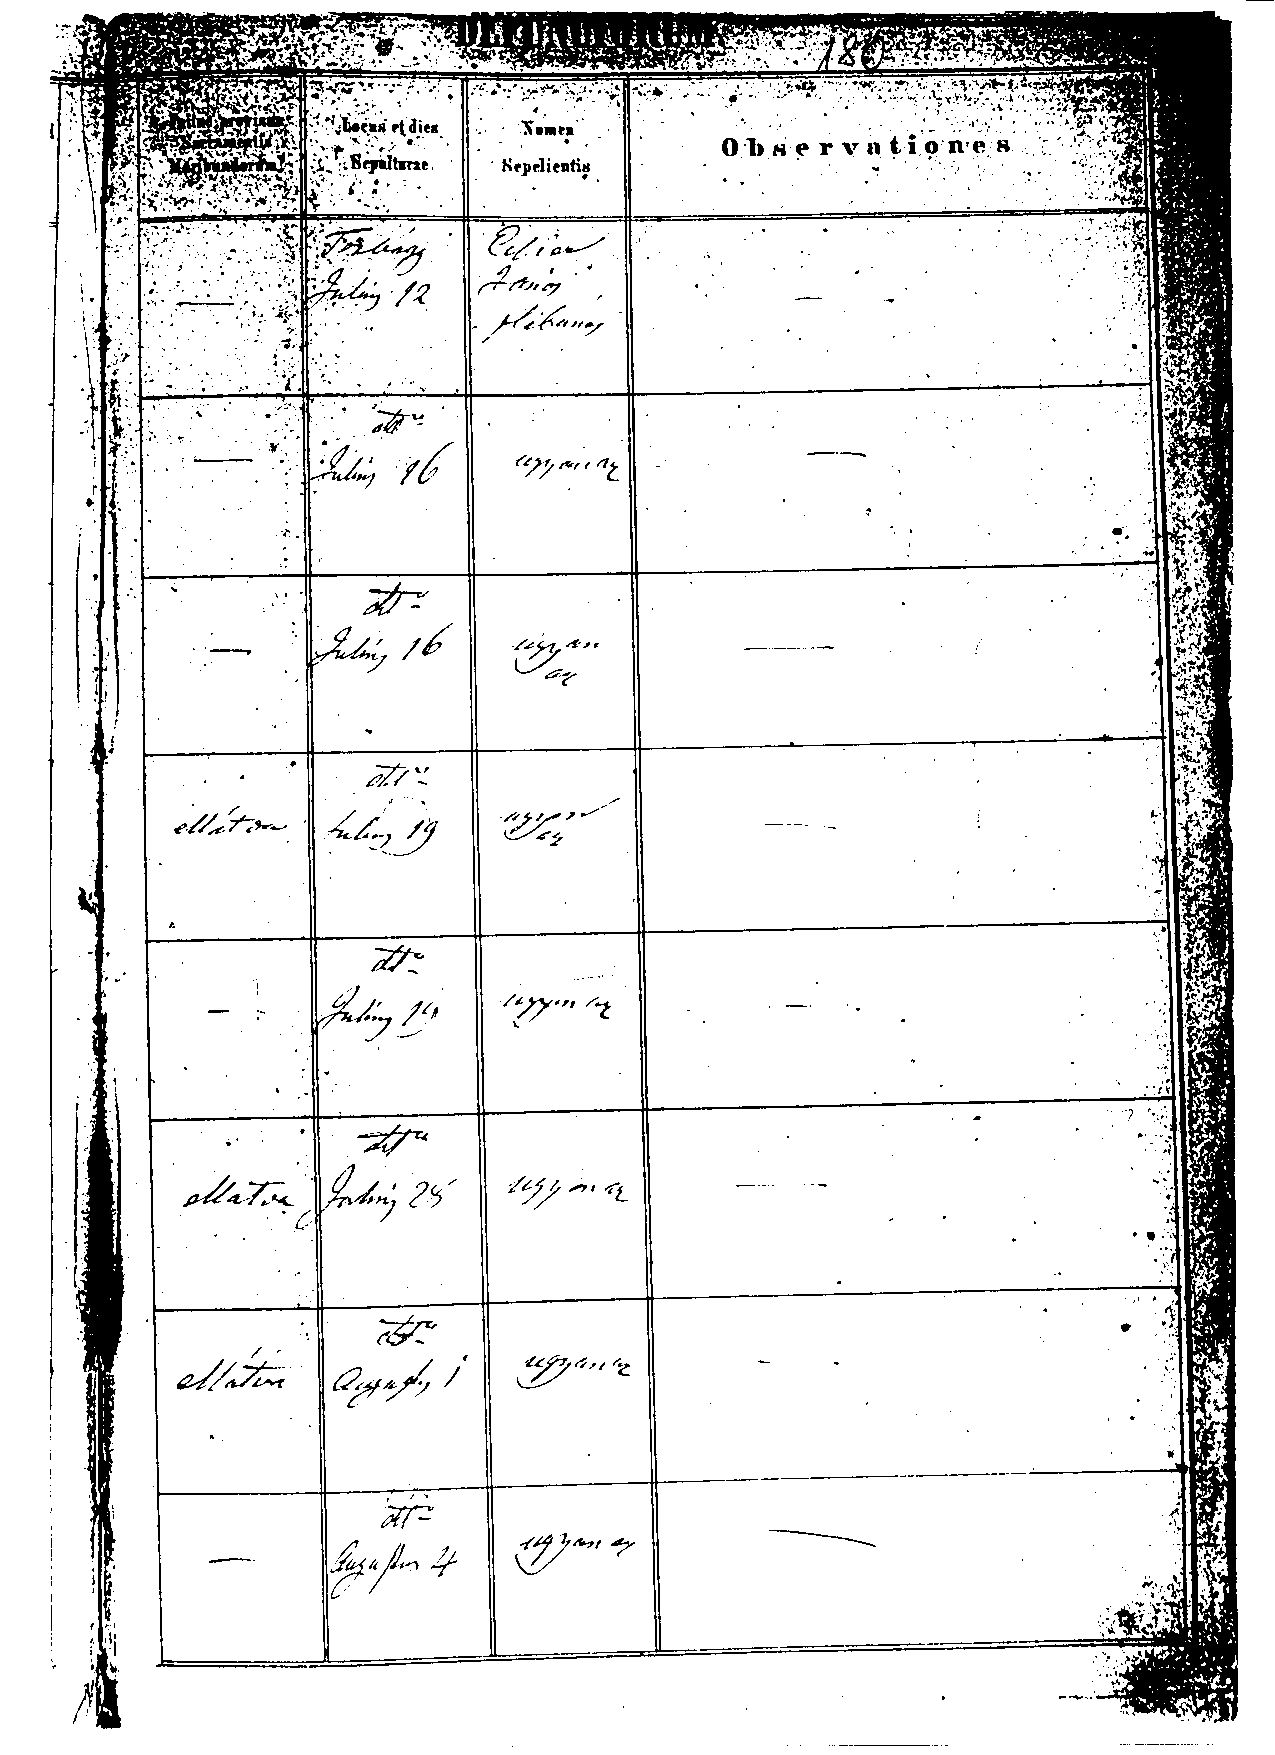 180
provisus Sacramentis Moribundorum?
Locus et dies Sepulturae
Nomen Sepelientis
Observationes
—
Július 12
János
plébános
—
—
dtto
Július 16
ugyanaz
—
—
dtto
Július 16
ugyan
az
—
ellátva
dtto
Július 19
ugyan
az
—
—
dtto
Július 19
ugyanaz
—
ellátva
dtto
Július 28
ugyanaz
—
ellátva
dtto
Augustus 1
ugyanaz
—
—
dtto
Augustus 4
ugyanaz
—